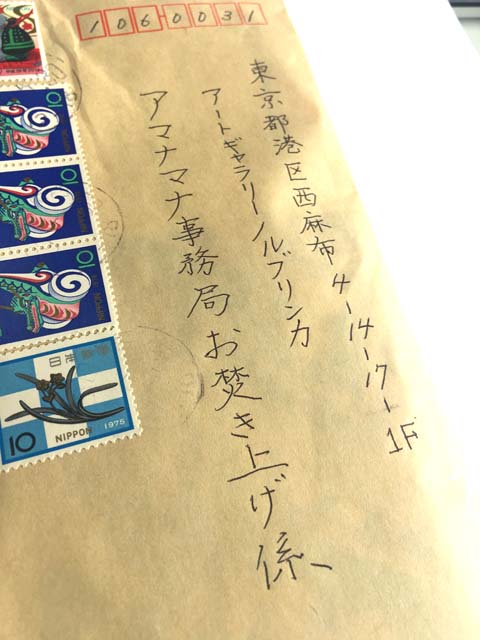 1060031
東京都港区西麻布4-14-17-1F
アートギャラリーノルブリンカ
アマナマナ事務局お焚き上げ係、
10
10
10
10 NIPPON 1975